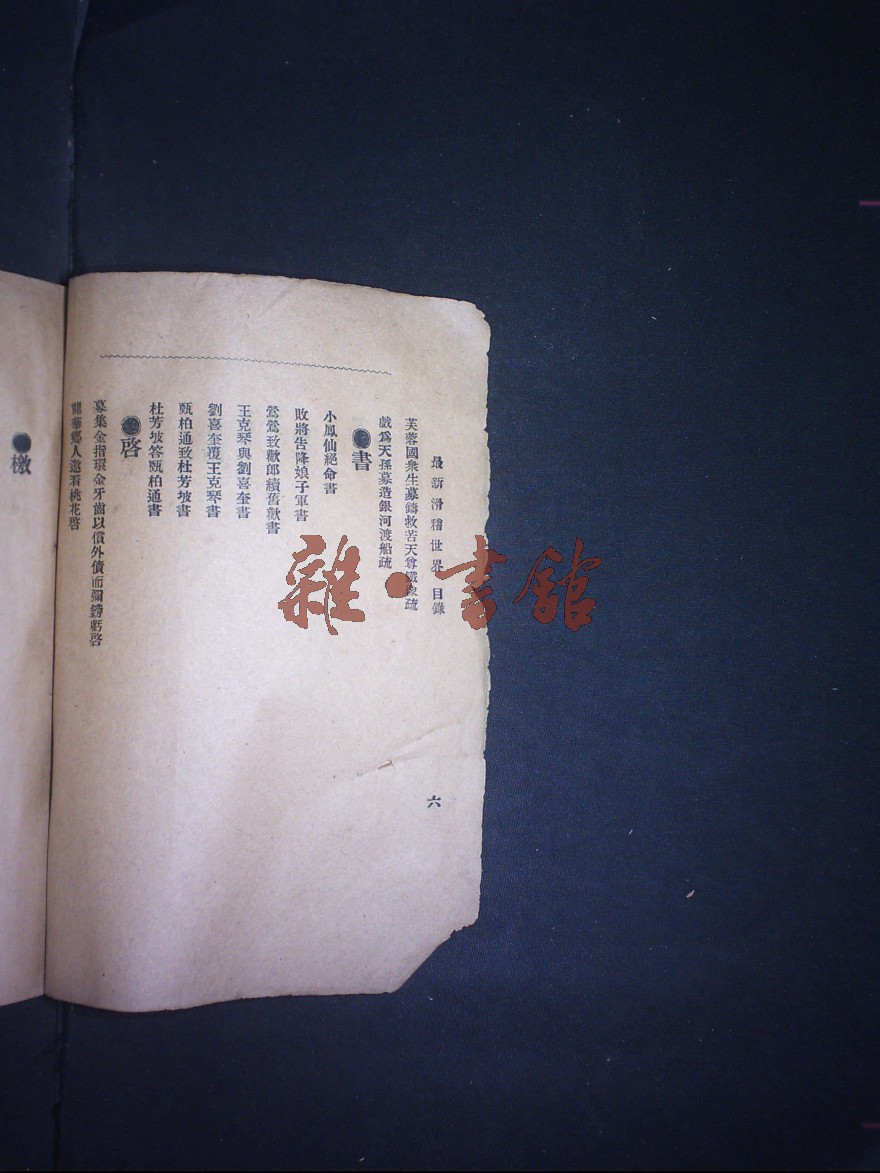 最新滑稽世界 目錄
六
芙蓉國衆生募鑄救苦天尊鐵像疏
戲爲天孫募造銀河渡船疏
●書
小鳳仙絕命書
敗將告降娘子軍書
鶯鶯致歡郎續舊歡書
王克琴與劉喜奎書
劉喜奎覆王克琴書
甄柏通致杜芳坡書
杜芳坡答甄柏通書
●啓
募集金指環金牙齒以償外債而彌鎊虧啓
龍華鄉人邀看桃花啓
●檄
雜·書館